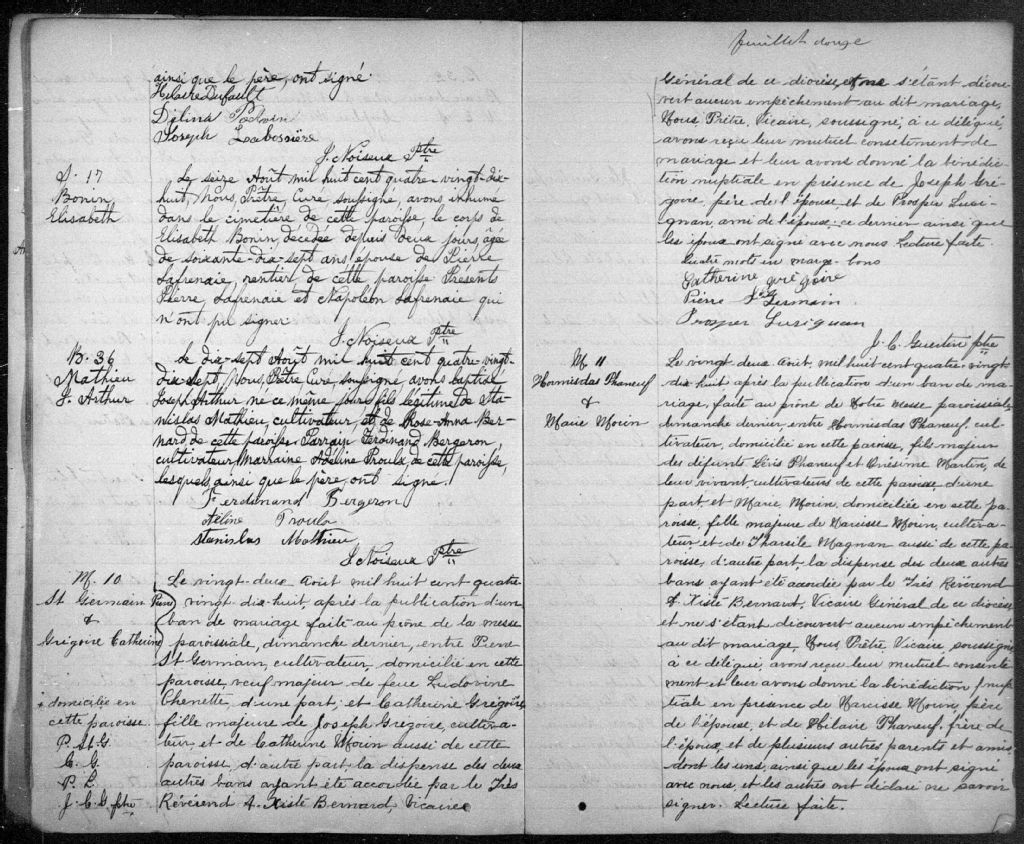 ainsi que le père, ont signé.
Hilaire Dufault
Délina
Joseph Labossière
J. Noiseux Ptre
S. 17
Bonin,
Elisabeth
Le seize Août mil huit cent quatre-vingt-dix-
huit, Nous, Prêtre, Curé soussigné, avons inhumé
dans le cimetière de cette paroisse, le corps de
Elisabeth Bonin, décédée depuis deux jours, âgée
de soixante-dix-sept ans épouse de Pierre
Lafrenaie, rentier, de cette paroisse. Présents
Pierre Lafrenaie et Napoléon Lafrenaie qui
n'ont pu signer.
J. Noiseux Ptre
B. 36
Mathieu
J. Arthur
Le dix-sept Août mil huit cent quatre-vingt-
dix-sept, Nous, Prêtre Curé, soussigné, avons baptisé
Joseph Arthur né ce même jour, fils légitime de Sta-
nislas Mathieu, cultivateur, et de Rose-Anna Ber-
nard, de cette paroisse. Parrain Ferdinand Bergeron,
cultivateur, Marraine Adéline Proulx, de cette paroisse,
lesquels, ainsi que le père, ont signé.
Ferdinand Bergeron
Adéline Proulx
Stanislas Mathieu
J. Noiseux Ptre
M. 10
St Germain Pierre
&
Grégoire Catherine
Le vingt-deux Août mil huit cent quatre
vingt-dix-huit, après la publication d'un
ban de mariage faite au prône de la messe
paroissiale, dimanche dernier, entre Pierre
St Germain, cultivateur, domicilié en cette
paroisse, veuf majeur de feue Ludovine
Chenette, d'une part, et Catherine Grégoire,
+ domiciliée en
cette paroisse.
P. St. G.
C. G.
P. L.
J. C. G. ptre
fille majeure de Joseph Grégoire, cultiva-
teur, et de Catherine Morin aussi de cette
paroisse, d'autre part, la dispense des deux
autres bans ayant été accordée par le Très
Révérend A. Xiste Bernard, Vicaire
feuillet douze
Général de ce diocèse, et ne s'étant décou-
vert aucun empêchement au dit mariage,
Nous Prêtre, Vicaire, soussigné, à ce délégué,
avons reçu leur mutuel consentement de
mariage et leur avons donné la bénédic-
tion nuptiale en présence de Joseph Gré-
goire, père de l'épouse et de Prosper Lusi-
gnan, ami de l'époux: ce dernier ainsi que
les époux ont signé avec nous. Lecture faite.
Quatre mots en marge bons
Catherine Grégoire
Pierre St Germain
Prosper Lusignan
J. C. ptre
M. 11
Hormisdas Phaneuf
&
Marie Morin
Le vingt deux Août, mil huit cent quatre-vingt-
dix-huit après la publication d'un ban de ma-
riage, faite au prône de Notre messe paroissiale,
dimanche dernier, entre Hormisdas Phaneuf, cul-
tivateur, domicilié en cette paroisse, fils majeur
des défunts Lévis Phaneuf et Onésime Martin, de
leur vivant cultivateurs de cette paroisse, d'une
part, et Marie Morin, domiciliée en cette pa-
roisse, fille majeure de Narcisse Morin, cultiva-
teur, et de Tharsile Magnan aussi de cette pa-
roisse, d'autre part, la dispense des deux autres
bans ayant été accordée par le Très Révérend
A. Xiste Bernard, Vicaire Général de ce diocèse
et ne s'étant découvert aucun empêchement
au dit mariage, Nous Prêtre, Vicaire, soussigné
à ce délégué, avons reçu leur mutuel consente-
ment et leur avons donné la bénédiction nup-
tiale en présence de Narcisse Morin, père
de l'épouse, et de Hilaire Phaneuf, frère de
l'époux, et de plusieurs autres parents et amis
dont les uns, ainsi que les époux ont signé
avec nous, et les autres ont déclaré ne savoir
signer. Lecture faite.